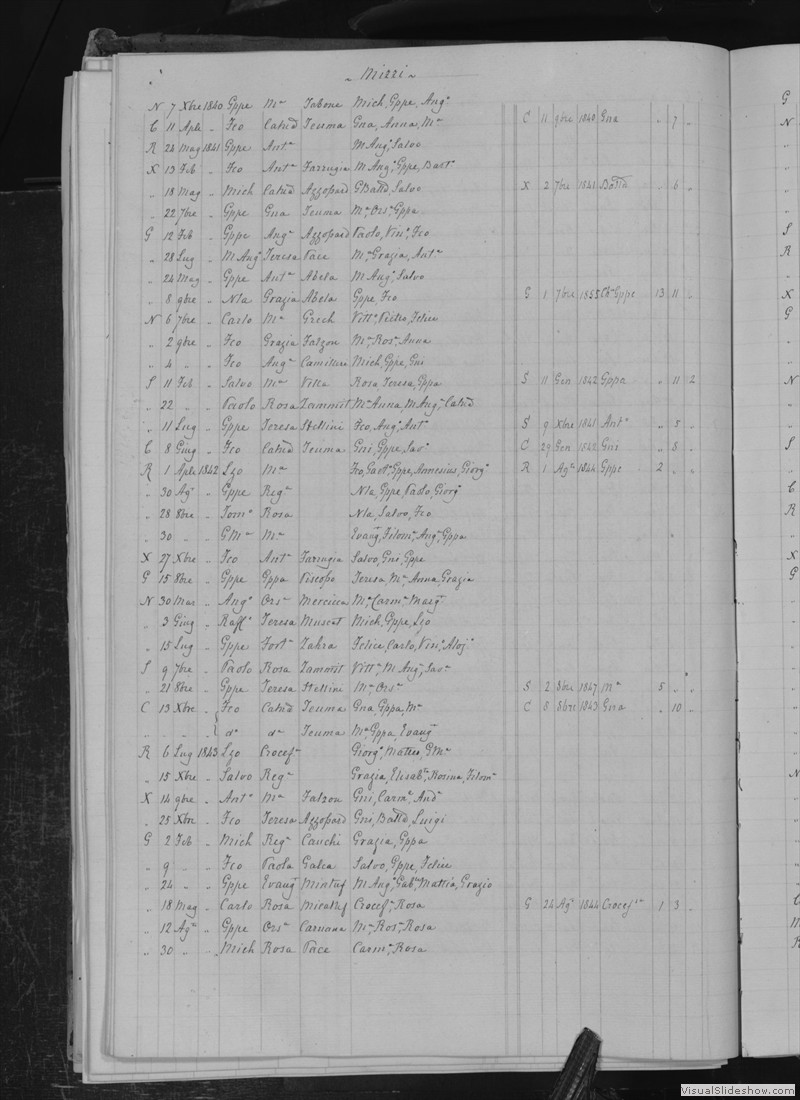 Mizzi
N 7 Xbre 1840 Gppe Ma Tabone Mich, Gppe, Ango
C 11 Aple " Fco Catnd Teuma Gna, Anna, Ma C 11 9bre 1840 Gna " 7 "
R 24 Mag 1841 Gppe Anta M Anga, Salvo
X 13 Feb " Fco Anta Farrugia M Anga, Gppe, Barto
" 18 Mag " Mich Catnd Azzopard GBattd, Salvo X 2 7bre 1841 Batta " 6 "
" 22 7bre " Gppe Gna Teuma Ma, Orsa, Gppa
G 12 Feb " Gppe Anga Azzopard Paolo, Vino, Fco
" 28 Lug " M Ango Teresa Pace Ma, Grazia, Anta
" 24 Mag " Gppe Anta Abela M Anga, Salvo
" 8 9bre " Nla Grazia Abela Gppe, Fco G 1 7bre 1855 Gppe 13 11 "
N 6 7bre " Carlo Ma Grech Vitta, Pietro, Felice
" 2 9bre " Fco Grazia Falzon Ma, Rosa, Anna
" 4 " " Fco Anga Camilleri Mich, Gppe, Gni
S 11 Feb " Salvo Ma Vella Rosa, Teresa, Gppa S 11 Gen 1842 Gppa " 11 2
" 22 " " Paolo Rosa Zammit Ma Anna, M Anga, Catnd
" 11 Lug " Gppe Teresa Stellini Fco, Anga, Anta S 9 Xbre 1841 Anta " 5 "
C 8 Giug " Fco Catnd Teuma Gni, Gppe, Savo C 29 Gen 1842 Gni " 8 "
R 1 Aple 1842 Lzo Ma Fco, Gppe, Giorgo R 1 Ago 1844 Gppe 2 " "
" 30 Ago " Gppe Rega Nla, Gppe, Paolo, Giorgo
" 28 8bre " Tomo Rosa Nla, Salvo, Fco
" 30 " " GMa Ma Evang, Filoma, Anga, Gppa
X 27 Xbre " Fco Anta Farrugia Salvo, Gni, Gppe
G 15 8bre " Gppe Gppa Viscopo Teresa, Ma, Anna, Grazia
N 30 Mar " Ango Orsa Mercieca Ma, Carma, Marga
" 3 Giug " Raffo Teresa Muscat Mich, Gppe, Lzo
" 15 Lug " Gppe Forta Zahra Felice, Carlo, Vino, Aloj
S 9 7bre " Paolo Rosa Zammit Vitta, M Anga, Sava
" 21 8bre " Gppe Teresa Stellini Ma, Orsa S 2 8bre 1847 Ma 5 " "
C 13 Xbre " Fco Catnd Teuma Gna, Gppa, Ma C 8 8bre 1843 Gna " 10 "
" " " do do Teuma Ma, Gppa, Evang
R 6 Lug 1843 Lzo Crocefa Giorgo, Matteo, GMa
" 15 Xbre " Salvo Rega Grazia, Elisaba, Rosina, Filoma
X 14 9bre " Anto Ma Falzon Gni, Carmo, And
" 25 Xbre " Fco Teresa Azzopard Gni, Battd, Luigi
G 2 Feb " Mich Rega Cauchi Grazia, Gppa
" 9 " " Fco Paola Galea Salvo, Gppe, Felice
" 24 " " Gppe Evang Mintuf M Ango, Gabl, Mattia, Grazio
" 18 Mag " Carlo Rosa Micallef Crocefa, Rosa G 24 Ago 1844 Crocefa 1 3 "
" 12 Ago " Gppe Orsa Caruana Ma, Rosa, Rosa
" 30 " " Mich Rosa Pace Carma, Rosa
G
N
S
R
X
G
N
S
C
R
X
G
N
VisualSlideshow.com